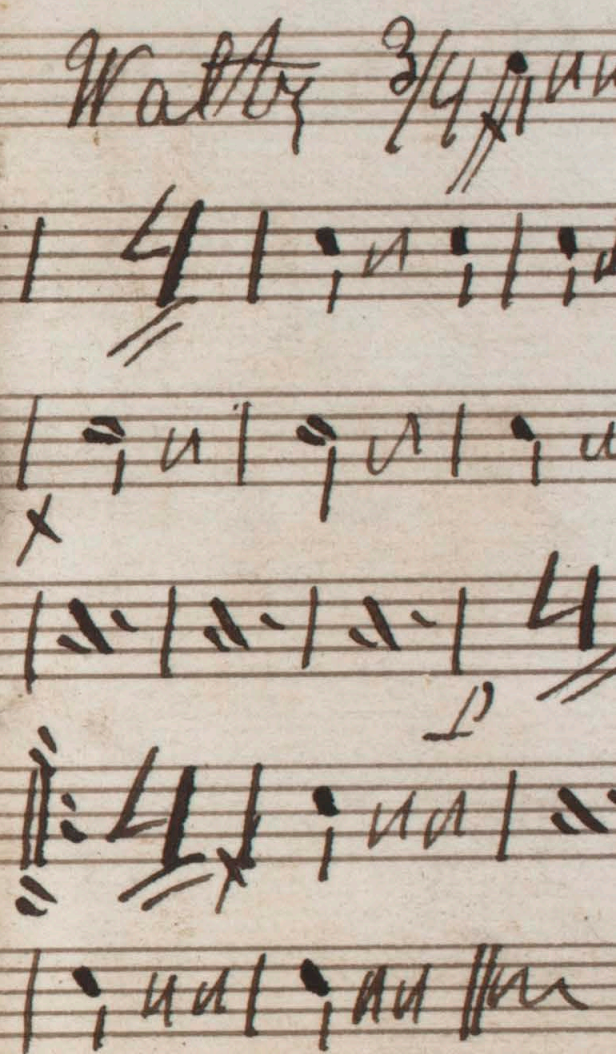 Waltz 3/4
4
4
4